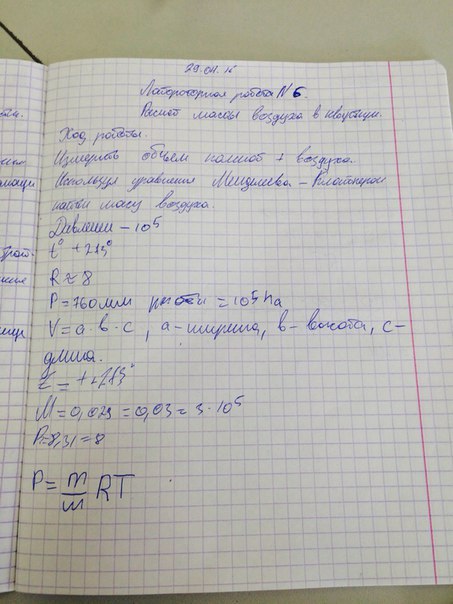 29.04.16
Лабороторная работа N 6.
Расчет массы воздуха в квартире.
Ход работы.
Измерить объем комнат + воздуха.
Используя уравнения Менделеева - Клаперона
найти массу воздуха.
Давлени - 10⁵
t° + 273°
R ≈ 8
P = 760мм ртсты = 10⁵ Па
V = a · b · c , a - ширина, в - высота, с -
длина.
t = + 273°
M = 0,029 = 0,03 = 3 · 10⁵
R = 8,31 = 8
P = m/m RT